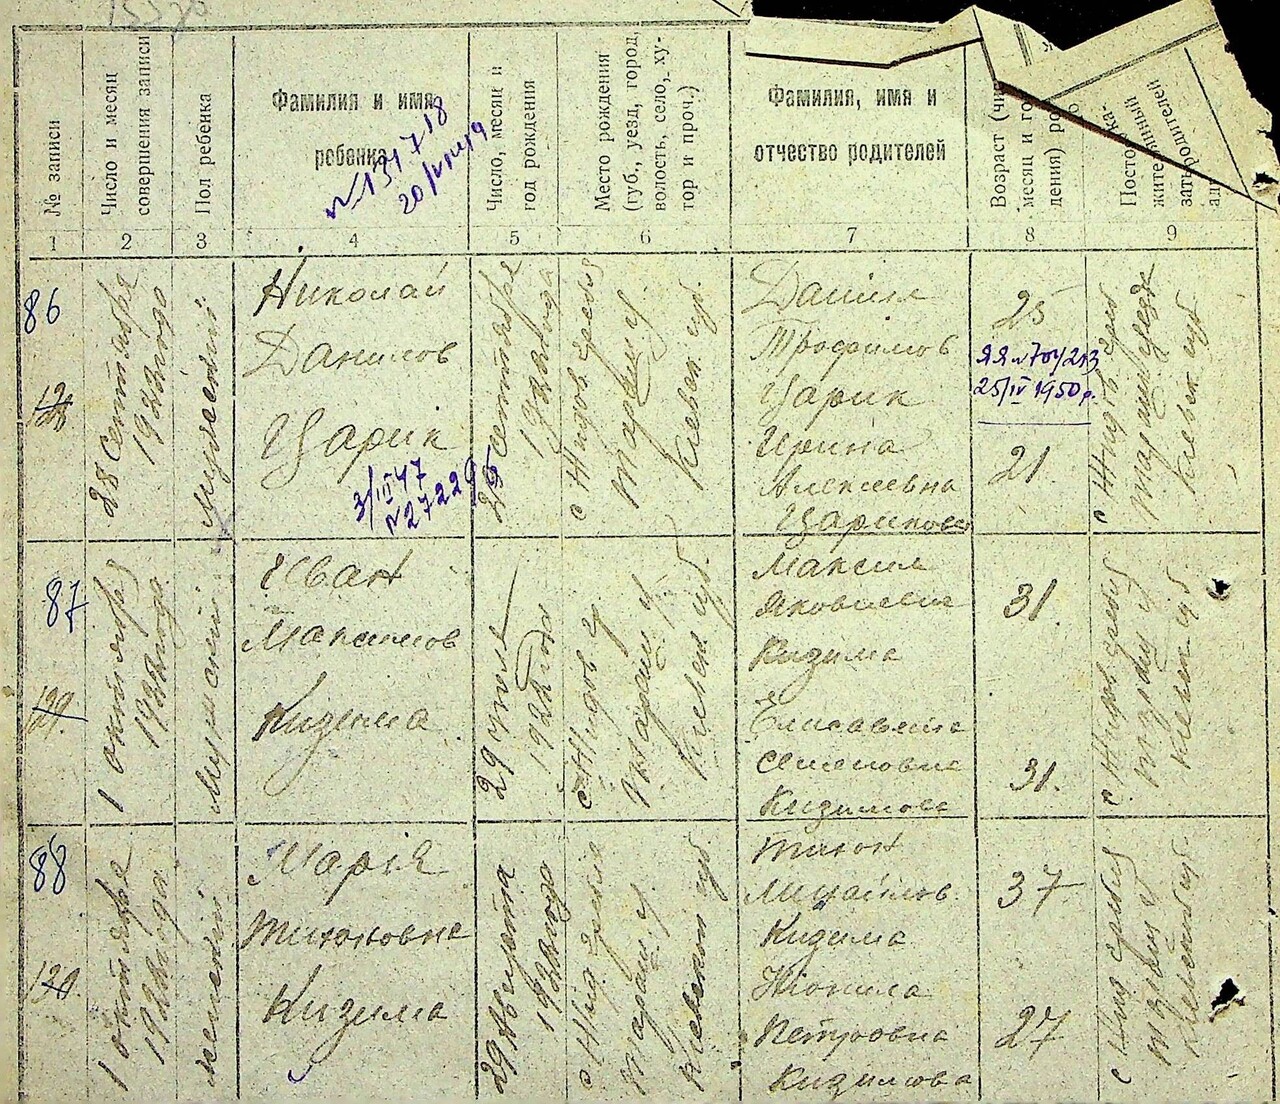 № записи
Число и месяц
совершения записи
Пол ребенка
Фамилия и имя
ребенка
№ 131718
20/
Число, месяц и
год рождения
Место рождения
(губ., уезд, город,
волость, село, ху-
тор и проч.)
Фамилия, имя и
отчество родителей
Возраст (чис
месяц и го
дения) ро
Посто
жите
зать
ад
ка-
янный
родителей
1 2 3 4 5 6 7 8 9
86
128
28 Сентября
1922 года
Мужеский
Николай
Данилов
Царик
3/III 47
№ 27229
25 Сентября
1922 года
с Жидов
Таращ у
Киевск губ.
Данил
Трофимов
Царик
Ирина
Алексеевна
Царикова
25
ЯЯ № 704213
25/IV 1950 р.
21
с Жидов
Таращ уезда
Киевск губ
87
129
1 октября
1922 года
Мужеский
Иван
Максимов
Кизима
29
1922 года
с Жидов
Таращ у
Киевск губ.
Максим
Яковлевич
Кизима
Елисавета
Семеновна
Кизимова
31
31.
с Жидов
Киевск губ
88
130
1 октября
1922 года
женский
Марія
Тихоновна
Кизима
29 Августа
1922 года
с Жид
Таращ у.
Киевской губ
Тихон
Михайлов
Кизима
Неонила
Петровна
Кизимова
37
27
с Жид
Киевской губ.